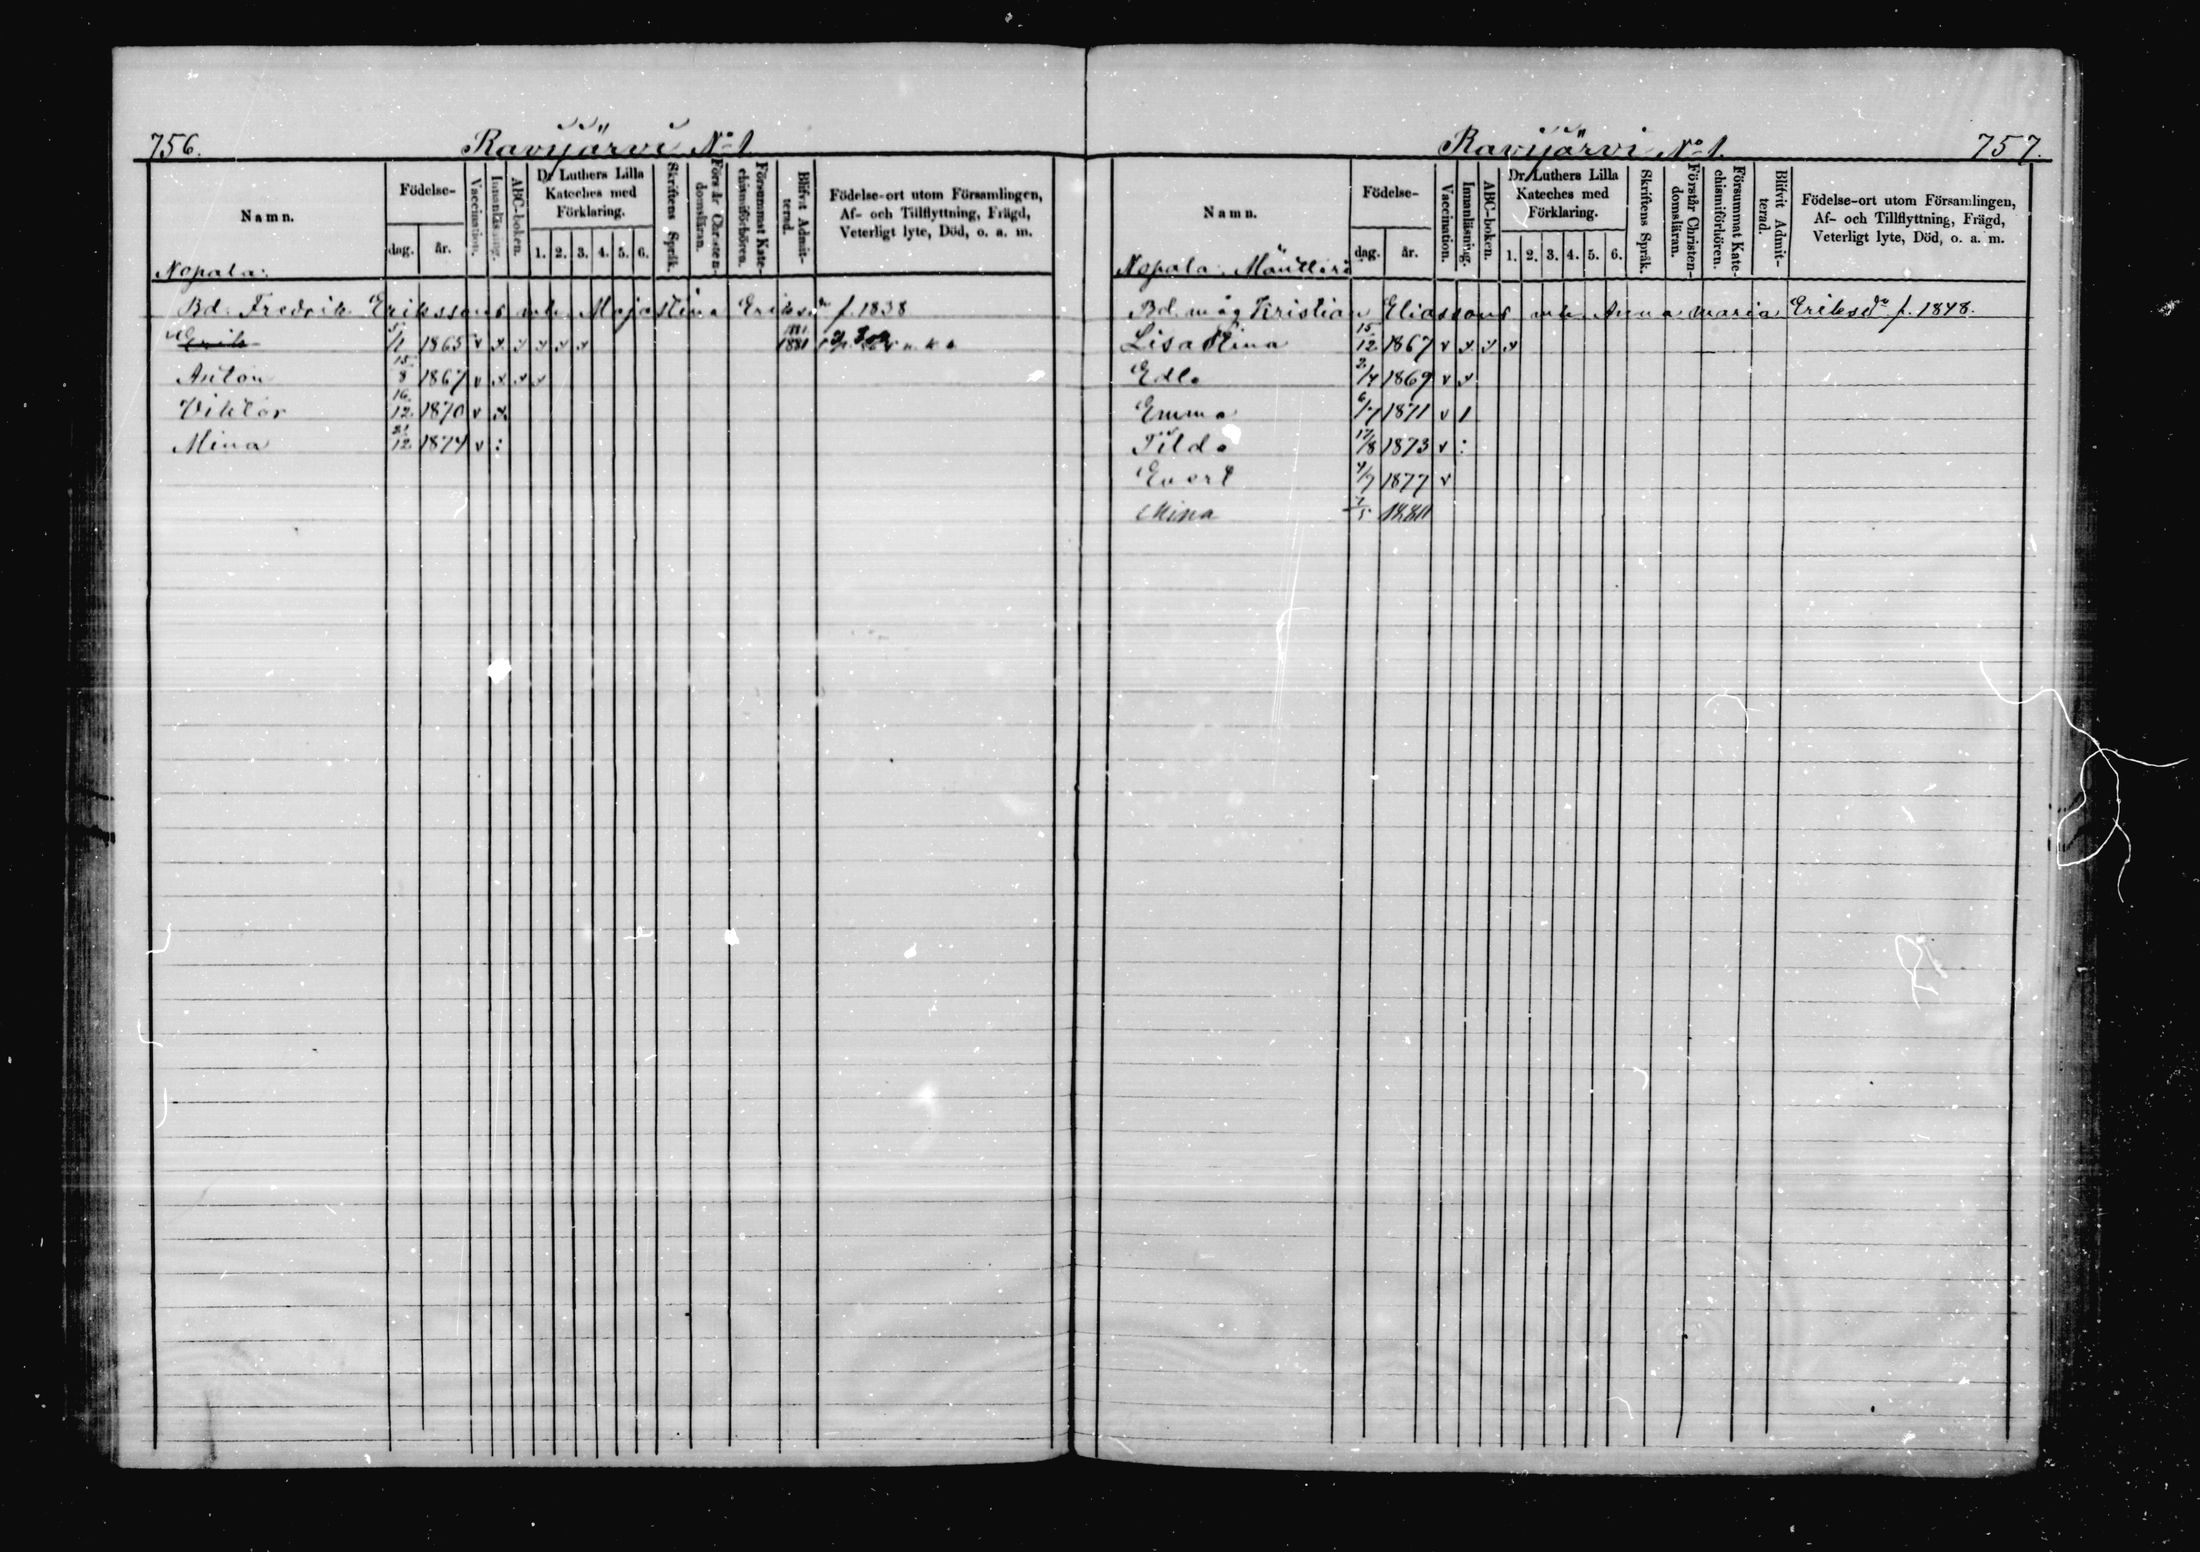 756. Ravijärvi No 1
Namn. Födelse- dag. år. Vaccination. Innanläsning. ABC-boken. Dr Luthers Lilla Kateches med Förklaring. 1. 2. 3. 4. 5. 6. Skriftens Språk. Förstår Christendomsläran. Försummat Katechismiförhören. Blifvit Admitterad. Födelse-ort utom Församlingen, Af- och Tillflyttning, Frägd, Veterligt lyte, Död, o. a. m.
Nopala:
Bd. Fredrik Erikssons o. mh. Maja Stina Eriksdr f. 1838
Erik 1865 v x x x x x 1881
Anton 15/8 1867 v x x x
Viktor 16/12 1870 v x
Mina 21/12 1874 v :
Ravijärvi No 1. 757.
Namn. Födelse- dag. år. Vaccination. Innanläsning. ABC-boken. Dr Luthers Lilla Kateches med Förklaring. 1. 2. 3. 4. 5. 6. Skriftens Språk. Förstår Christendomsläran. Försummat Katechismiförhören. Blifvit Admitterad. Födelse-ort utom Församlingen, Af- och Tillflyttning, Frägd, Veterligt lyte, Död, o. a. m.
Nopala
Bd. måg Kristian Eliassons mh. Anna Maria Eriksdr f. 1848.
Lisa Stina 15/12 1867 v x x x
Edla 2/4 1869 v x
Emma 1871 v /
Tilda 17/8 1873 v :
Evert 4/7 1877 v
Mina 7/5 1880